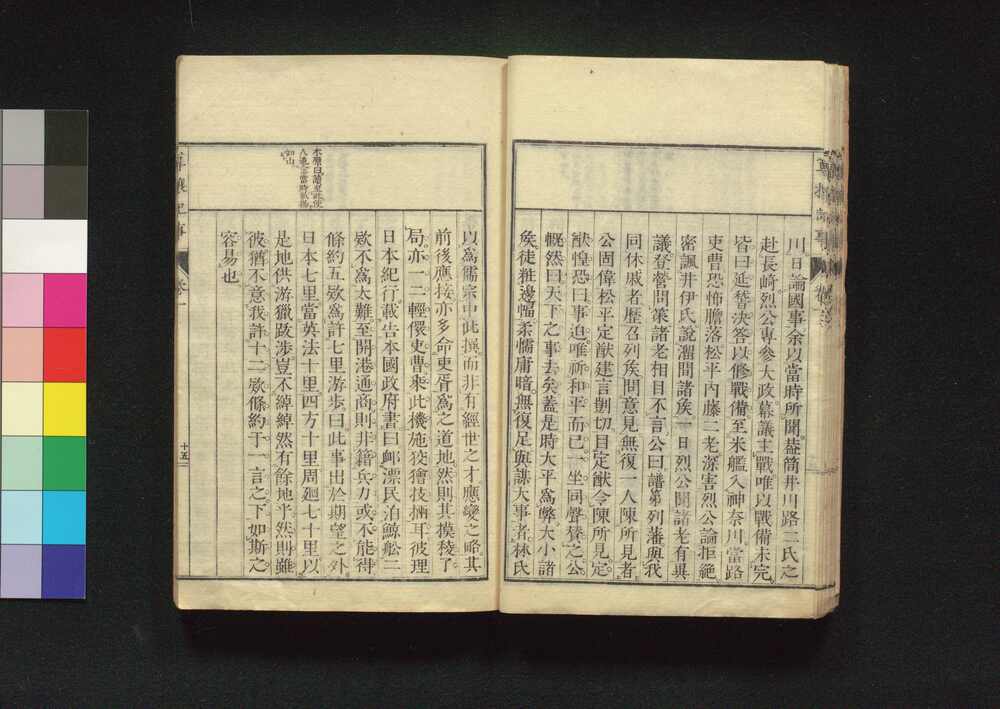 川日論國事余以當時所聞葢筒井川路二氏之
赴長崎烈公専參大政幕議主戰唯以戰備未完
皆曰延諬決答以修戰備至米艦入神奈川當路
吏曹恐怖膽落松平內藤二老深害烈公論拒絶
密諷井伊氏説溜間諸矦一日烈公聞諸老有異
議登營問策諸老相目不言公曰譜第列藩與我
同休戚者歷召列矦問意見無復一人陳所見者
公固偉松平定猷建言剴切目定猷令陳所見定
猷惶恐曰事迫唯祈和平而已一坐同聲賛之公
慨然曰天下之事去矣葢是時大平爲弊大小諸
矦徒粧邊幅柔懦庸暗無復足與謀大事者林氏
以爲儒宗中此撰而非有經世之才應變之略其
前後應接亦多命吏胥爲之道地然則其摸稜了
局亦一二輕儇吏曹乘此機施狡獪技倆耳彼理
日本紀行載告本國政府書曰䘏漂民泊鯨舩二
欵不爲太難至開港通商則非籍兵力或不能得
條約五欵爲許七里游歩曰此事出於期望之外
日本七里當英法十里四方十里周廻七十里以
是地供游獵跋渉豈不綽綽然有餘地乎然則雖
彼猶不意我許十二欵條約于一言之下如斯之
容易也
卷一
十五